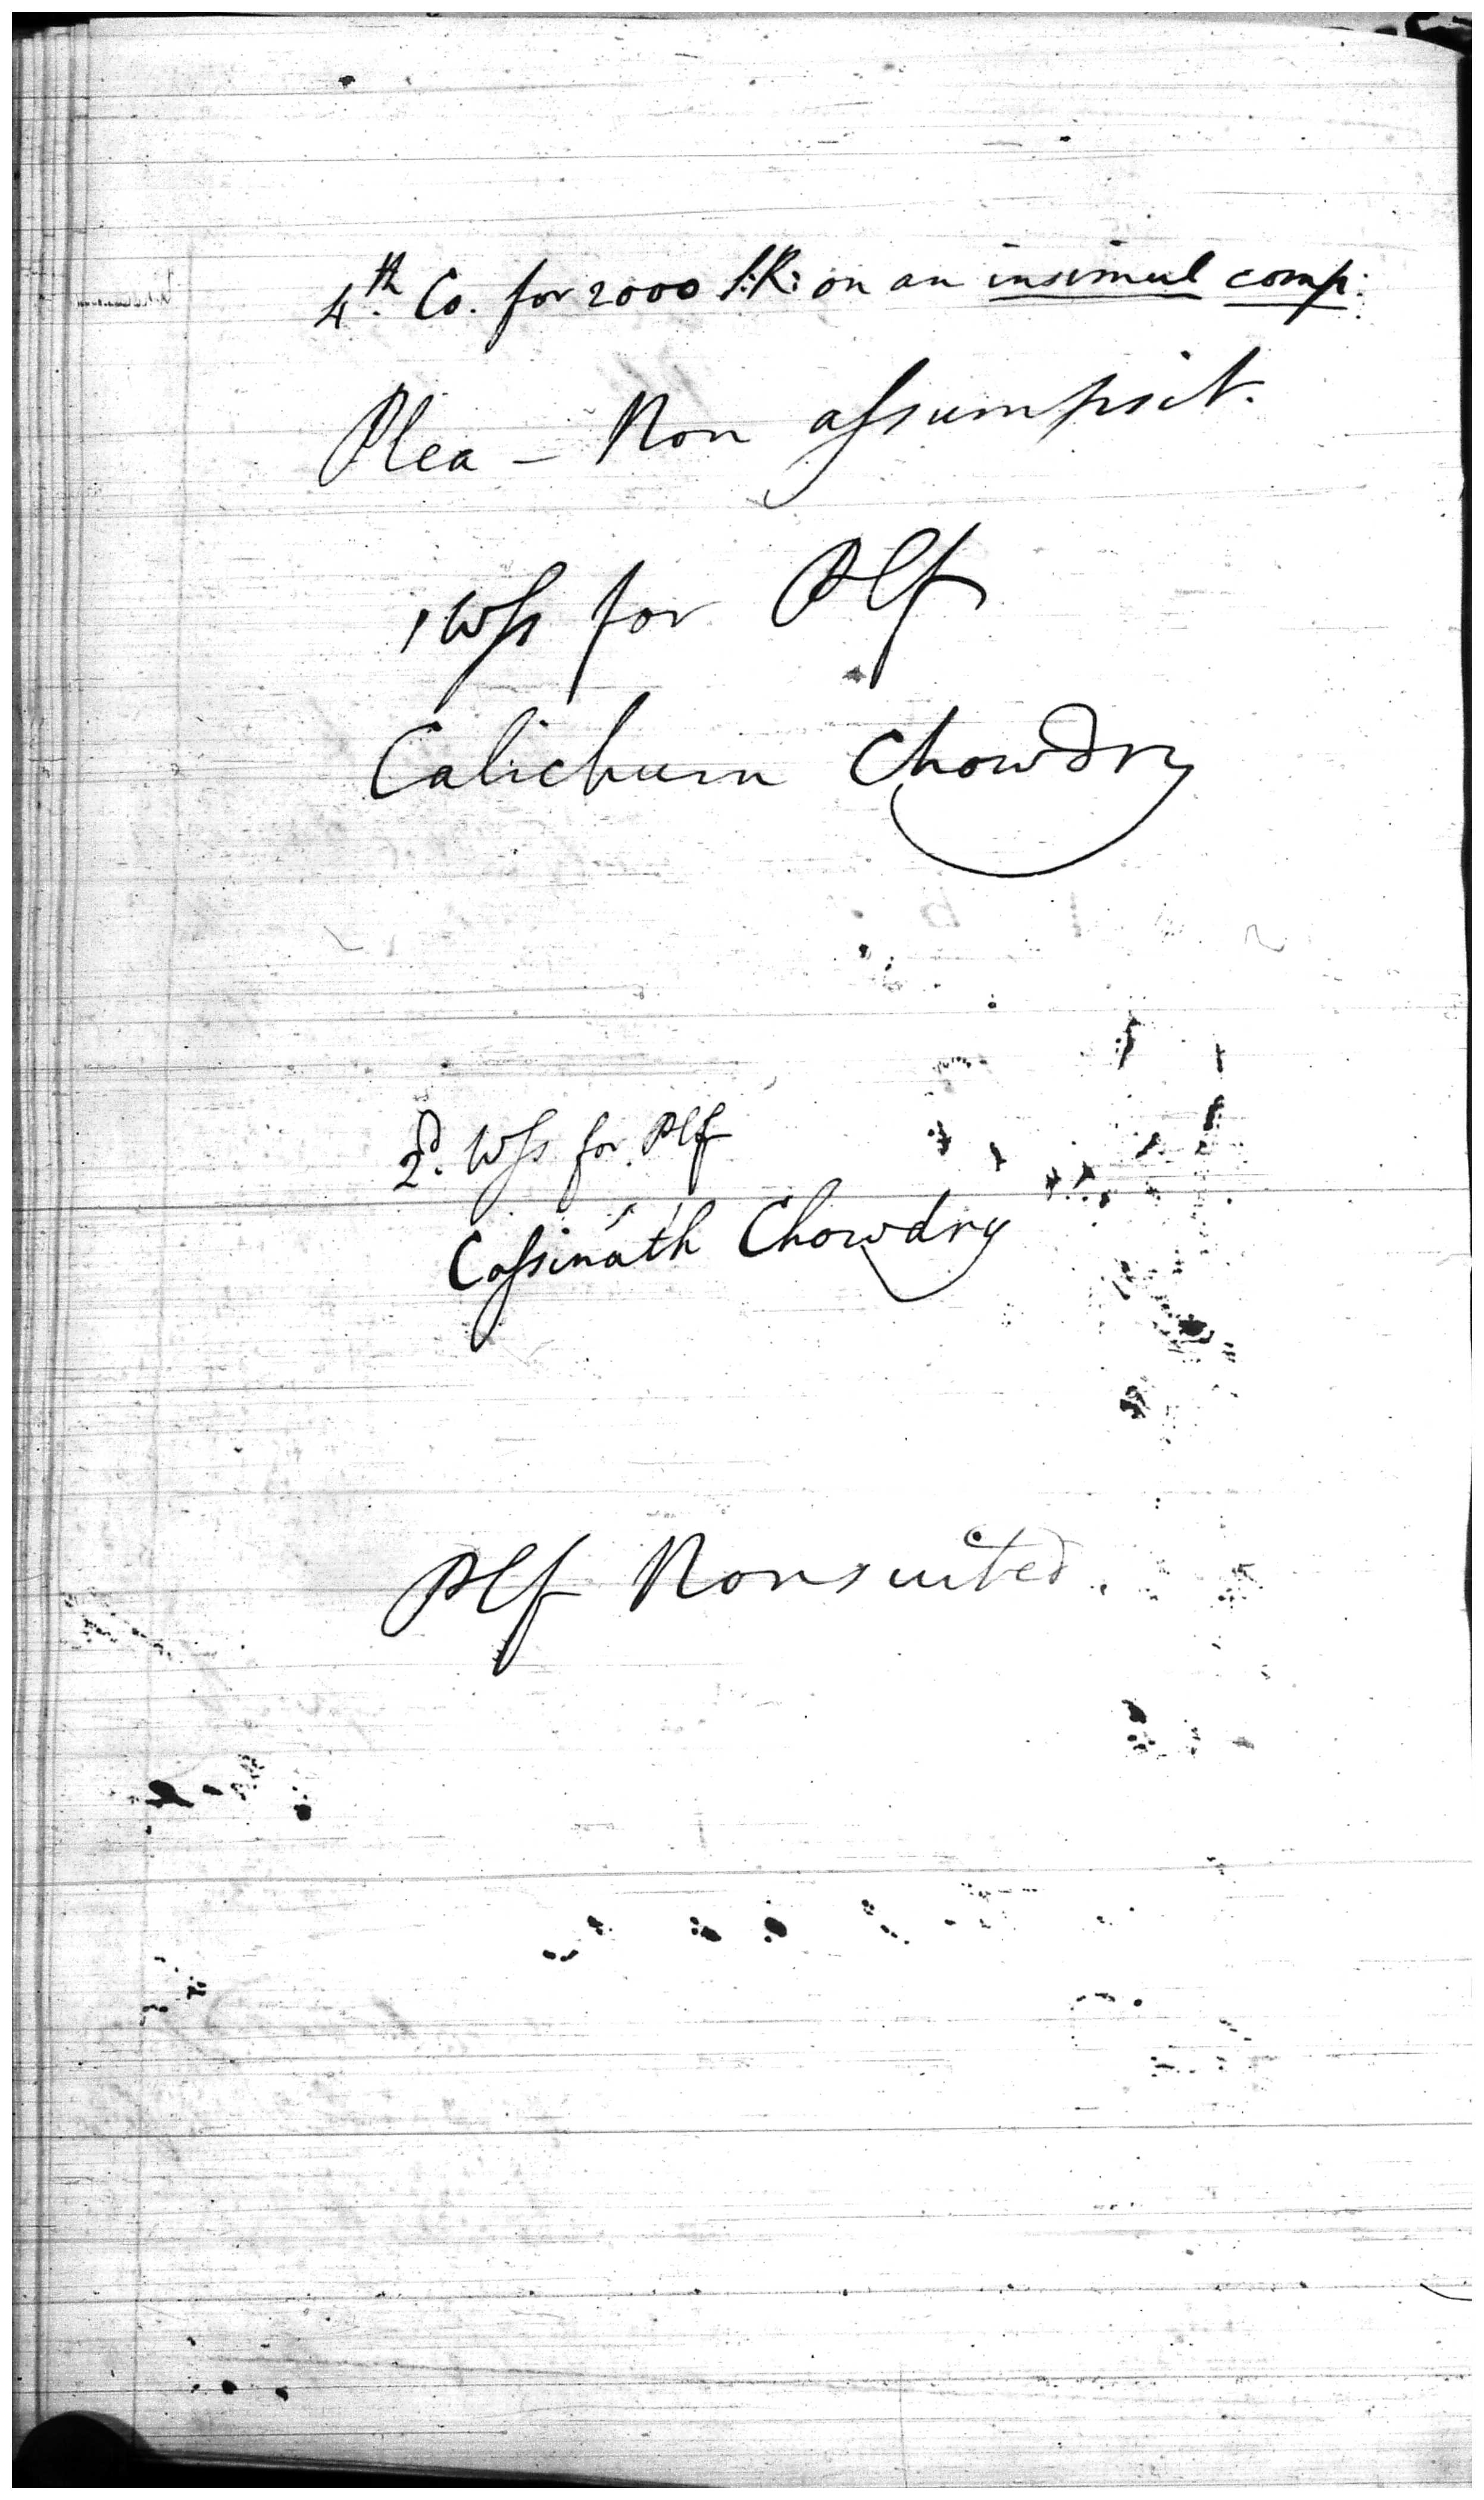 4th. Co. for 2000 S:R: on an insimul comp:
Plea - Non assumpsit.
1 Wss for Plf
Calichurn Chowdry
2d. Wss for Plf
Cossinath Chowdry
Plf Nonsuited.